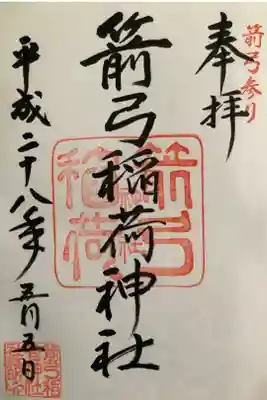 箭弓参り
奉拝
箭弓稲荷神社
箭弓稲荷
平成二十八年五月五日